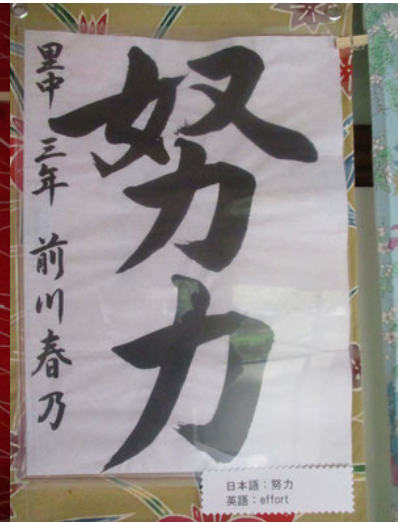 努力
里中 三年 前川春乃
日本語：努力
英語：effort